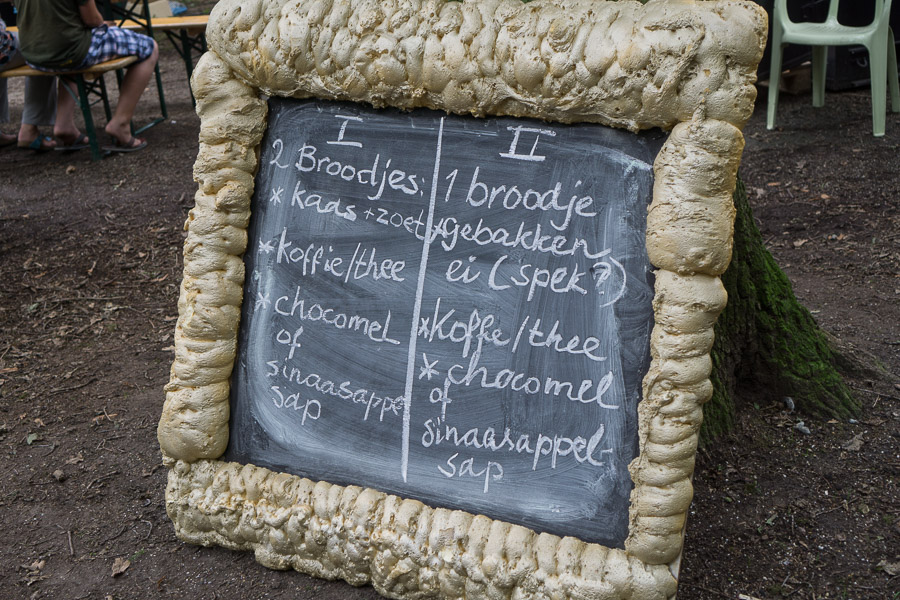 I
2 Broodjes:
* kaas + zoet
* koffie/thee
* chocomel
of
sinaasappel
sap
II
1 broodje
* gebakken
ei (spek?)
* Koffie/thee
* chocomel
of
sinaasappel-
sap